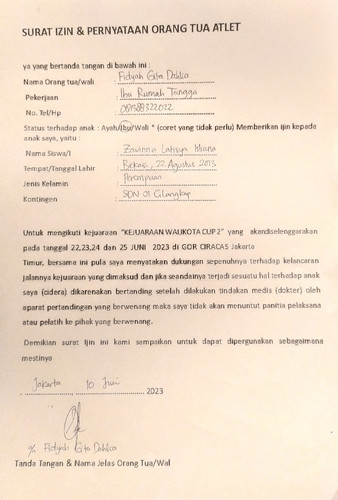 SURAT IZIN & PERNYATAAN ORANG TUA ATLET
ya yang bertanda tangan di bawah ini :
Nama Orang tua/wali : Fidyah Gita Dahlia
Pekerjaan : Ibu Rumah Tangga
No. Tel/Hp :
Status terhadap anak : Ayah/Ibu/Wali * (coret yang tidak perlu) Memberikan ijin kepada
anak saya, yaitu :
Nama Siswa/I :
Tempat/Tanggal Lahir : Bekasi, 22 Agustus 2013
Jenis Kelamin : Perempuan
Kontingen : SDN 01 Cilangkap
Untuk mengikuti kejuaraan "KEJUARAAN WALIKOTA CUP 2" yang akandiselenggarakan
pada tanggal 22,23,24 dan 25 JUNI 2023 di GOR CIRACAS Jakarta
Timur, bersama ini pula saya menyatakan dukungan sepenuhnya terhadap kelancaran
jalannya kejuaraan yang dimaksud dan jika seandainya terjadi sesuatu hal terhadap anak
saya (cidera) dikarenakan bertanding setelah dilakukan tindakan medis (dokter) oleh
aparat pertandingan yang berwenang maka saya tidak akan menuntut panitia pelaksana
atau pelatih ke pihak yang berwenang.
Demikian surat Ijin ini kami sampaikan untuk dapat dipergunakan sebagaimana
mestinya
Jakarta, 10 Juni 2023
Fidyah Gita Dahlia
Tanda Tangan & Nama Jelas Orang Tua/Wal